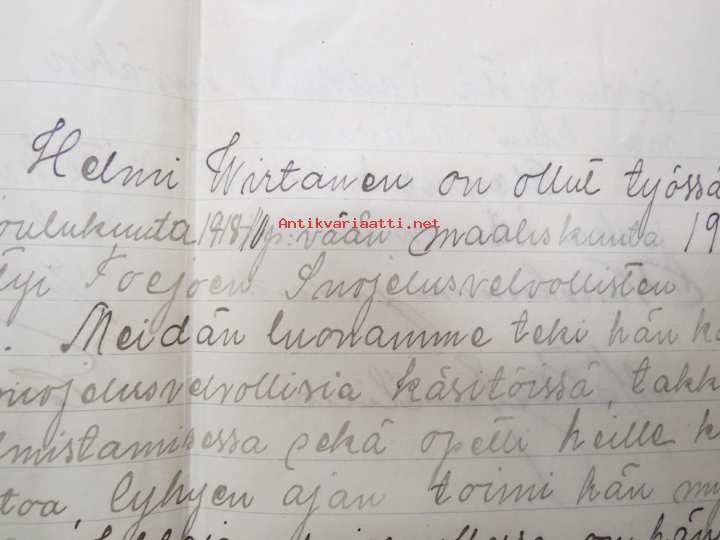 Helmi Wirtanen on ollut työssä
joulukuuta 1918 p:vään maaliskuuta 19
Suojelusvelvollisten
Meidän luonamme teki hän
suojelusvelvollisia käsitöissä, takk
lmistamisessa sekä opetti heille k
toa, lyhyen ajan toimi hän my
on hän
Antikvariaatti.net